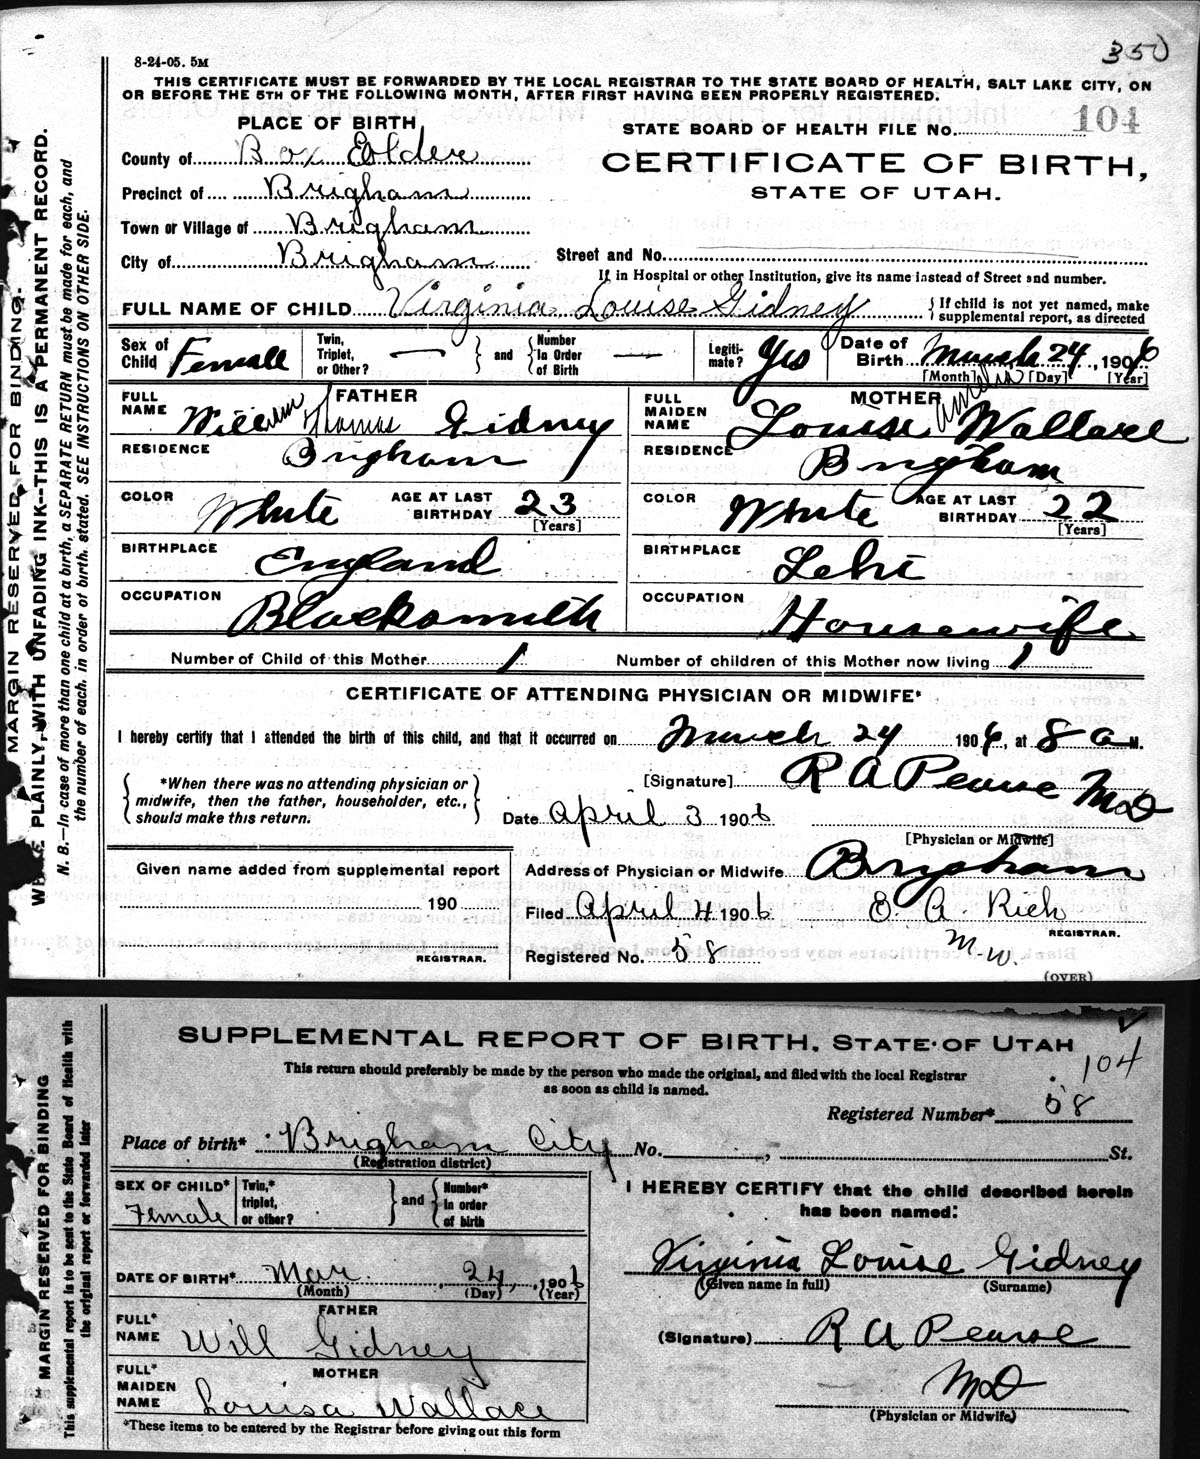 350
8-24-05. 5M
THIS CERTIFICATE MUST BE FORWARDED BY THE LOCAL REGISTRAR TO THE STATE BOARD OF HEALTH, SALT LAKE CITY, ON
OR BEFORE THE 5TH OF THE FOLLOWING MONTH, AFTER FIRST HAVING BEEN PROPERLY REGISTERED.
PLACE OF BIRTH
STATE BOARD OF HEALTH FILE No. 104
County of Box Elder
CERTIFICATE OF BIRTH,
Precinct of Brigham
STATE OF UTAH.
Town or Village of Brigham
City of Brigham
Street and No.
If in Hospital or other Institution, give its name instead of Street and number.
FULL NAME OF CHILD Virginia Louise Gidney { If child is not yet named, make supplemental report, as directed
Sex of Child Female Twin, Triplet, or Other? — } and { Number In Order of Birth — Legiti-mate? Yes Date of Birth March 24, 1906
[Month] [Day] [Year]
FATHER
FULL NAME William Thomas Gidney
RESIDENCE Brigham
COLOR White AGE AT LAST BIRTHDAY 23 [Years]
BIRTHPLACE England
OCCUPATION Blacksmith
MOTHER
FULL MAIDEN NAME Louise Amelia Wallace
RESIDENCE Brigham
COLOR White AGE AT LAST BIRTHDAY 22 [Years]
BIRTHPLACE Lehi
OCCUPATION Housewife
Number of Child of this Mother 1 Number of children of this Mother now living 1
CERTIFICATE OF ATTENDING PHYSICIAN OR MIDWIFE*
I hereby certify that I attended the birth of this child, and that it occurred on March 24 1906, at 8 a M.
*When there was no attending physician or
midwife, then the father, householder, etc.,
should make this return.
[Signature] R A Pearse MD
Date April 3 1906
[Physician or Midwife]
Given name added from supplemental report
190
REGISTRAR.
Address of Physician or Midwife Brigham
Filed April 4 1906 E. A. Rich
REGISTRAR.
M-W.
Registered No. 58
(OVER)
MARGIN RESERVED FOR BINDING.
PLAINLY, WITH UNFADING INK--THIS IS A PERMANENT RECORD.
N. B.—In case of more than one child at a birth, a SEPARATE RETURN must be made for each, and
the number of each, in order of birth, stated. SEE INSTRUCTIONS ON OTHER SIDE.
SUPPLEMENTAL REPORT OF BIRTH. STATE OF UTAH
104
This return should preferably be made by the person who made the original, and filed with the local Registrar
as soon as child is named.
Registered Number* 58
Place of birth* Brigham City No. , St.
(Registration district)
SEX OF CHILD* Female Twin,* triplet, or other? } and { Number* in order of birth
DATE OF BIRTH* Mar. 24, 1906
(Month) (Day) (Year)
FATHER
FULL* NAME Will Gidney
MOTHER
FULL* MAIDEN NAME Louisa Wallace
*These items to be entered by the Registrar before giving out this form
I HEREBY CERTIFY that the child described herein
has been named:
Virginia Louise Gidney
(Given name in full) (Surname)
(Signature) R A Pearse
MD
(Physician or Midwife)
MARGIN RESERVED FOR BINDING
This supplemental report to be sent to the State Board of Health with
the original report or forwarded later